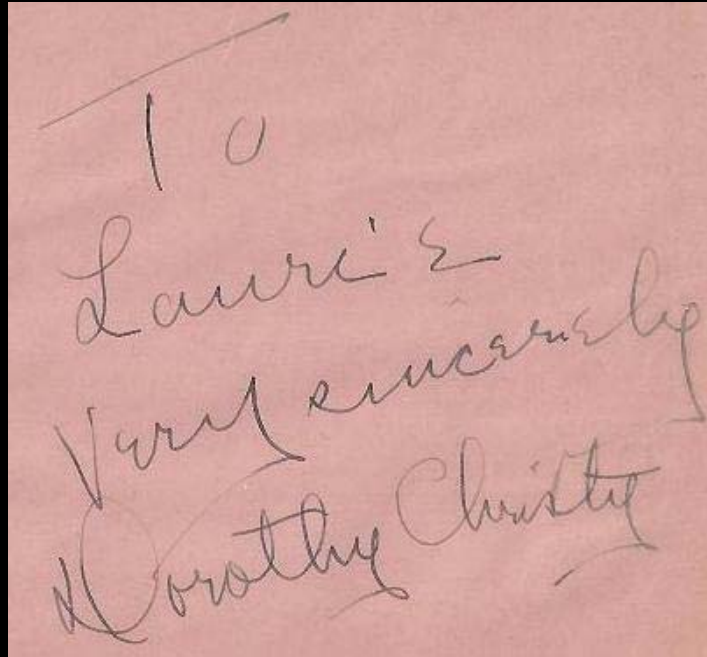 To
Laurie
Very sincerely
Dorothy Christy